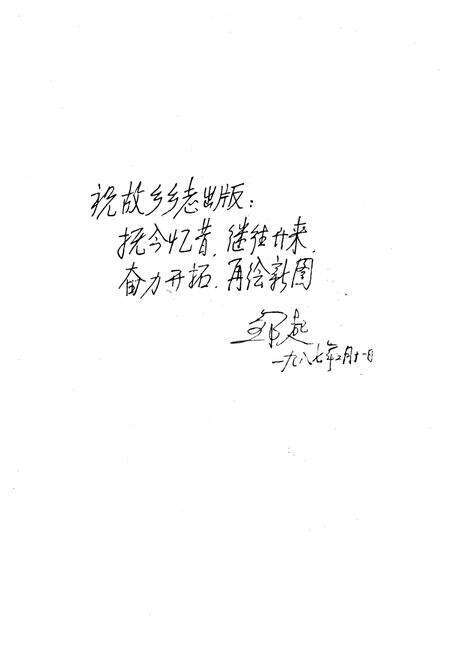 祝故乡乡志出版：
抚今忆昔，继往开来，
奋力开拓，再绘新图
起
一九八七年二月十一日